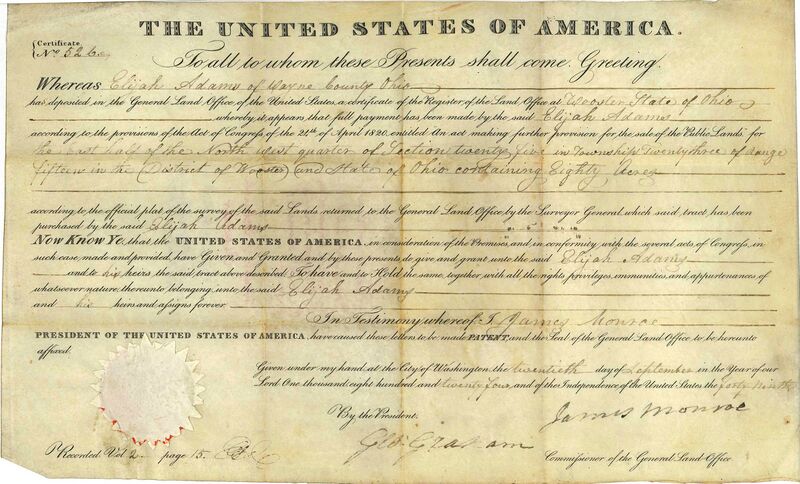 THE UNITED STATES OF AMERICA.
Certificate
No. 526
To all to whom these Presents shall come, Greeting.
Whereas Elijah Adams of Wayne County Ohio
has deposited in the General Land Office of the United States, a certificate of the Register of the Land Office at Wooster State of Ohio
whereby it appears that full payment has been made by the said Elijah Adams
according to the provisions of the Act of Congress of the 24th of April 1820, entitled An act making further provision for the sale of the Public Lands for
the East half of the North West quarter of Section twenty five in Township Twenty three of Range
fifteen in the (District of Wooster) and State of Ohio containing Eighty Acres
according to the official plat of the survey of the said Lands returned to the General Land Office by the Surveyor General, which said tract has been
purchased by the said Elijah Adams
Now Know Ye, that the UNITED STATES OF AMERICA, in consideration of the Premises, and in conformity with the several acts of Congress, in
such case made and provided, have Given and Granted and by these presents do give and grant unto the said Elijah Adams
and to his heirs, the said tract above described To have and to Hold the same, together with all the rights privileges, immunities, and appurtenances of
whatsoever nature, thereunto belonging, unto the said Elijah Adams
and his heirs and assigns forever.
In Testimony whereof, I, James Monroe
PRESIDENT OF THE UNITED STATES OF AMERICA, have caused these letters to be made PATENT, and the Seal of the General Land Office to be hereunto
affixed.
Given under my hand at the City of Washington, the twentieth day of September in the Year of our
Lord One thousand eight hundred and twenty four, and of the Independence of the United States the forty Ninth
By the President,
James Monroe
Geo. Graham
Recorded Vol 2. page 15.
Commissioner of the General Land-Office.